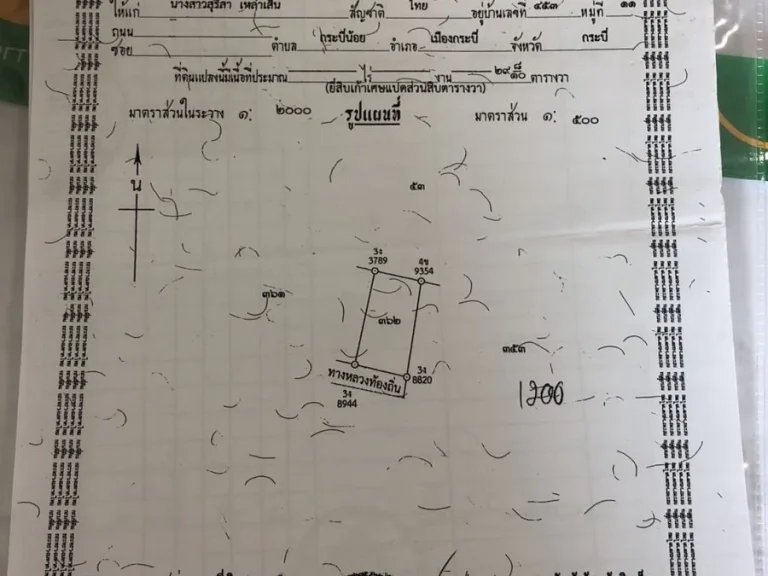 ให้แก่ นางสาวสุริสา เหล่าเส็น สัญชาติ ไทย อยู่บ้านเลขที่ ๔๕๓ หมู่ที่ ๑๑
ถนน
ซอย ตำบล กระบี่น้อย อำเภอ เมืองกระบี่ จังหวัด กระบี่
ที่ดินแปลงนี้มีเนื้อที่ประมาณ ไร่ งาน ๒๙ ๘/๑๐ ตารางวา
(ยี่สิบเก้าเศษแปดส่วนสิบตารางวา)
มาตราส่วนในระวาง ๑: ๒๐๐๐ รูปแผนที่ มาตราส่วน ๑: ๕๐๐
น
๕๓
3ง
3789
4ข
9354
๓๖๑
๓๖๒
๓๕๓
ทางหลวงท้องถิ่น
3ง
8820
3ง
8944
1200